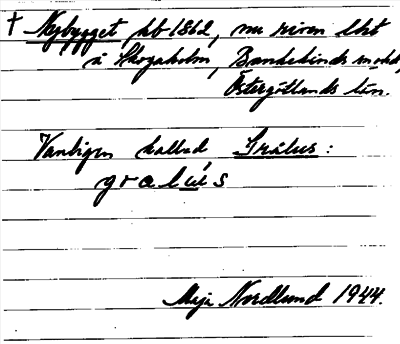 † Nybygget, hb 1862, nu riven lht
å Skogaholm, Bankekinds sn o hd,
Östergötlands län.
Vanligen kallad Grålus:
gralú̲s
Maja Nordlund 1944.